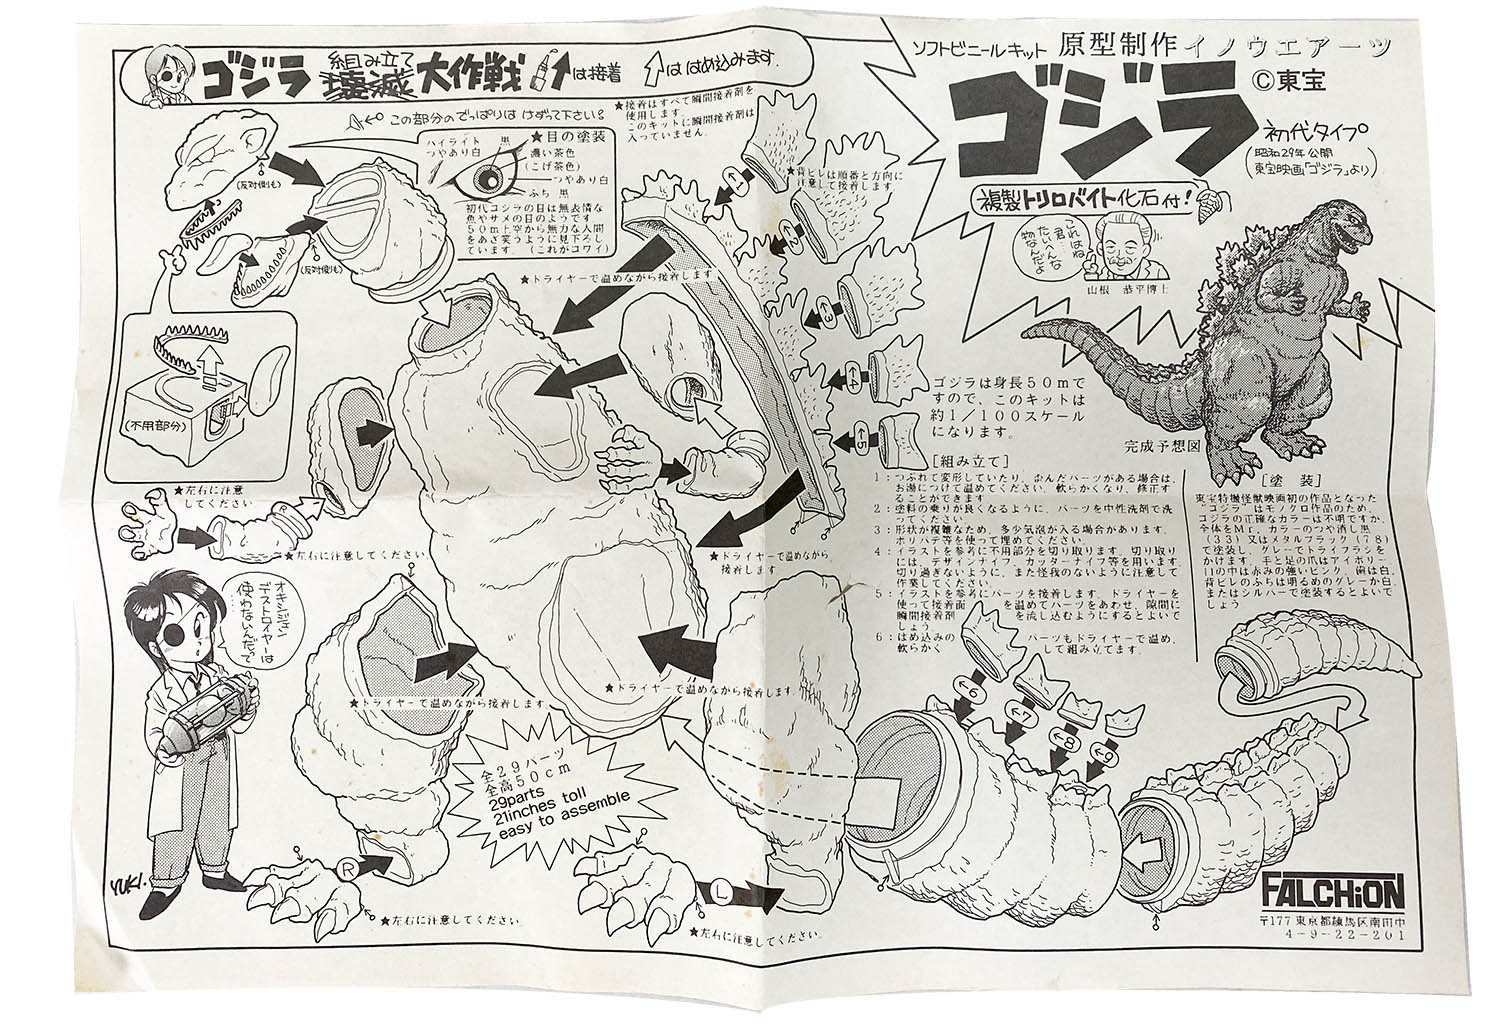 ゴジラ 組み立て 壊滅 大作戦 は接着 は はめ込みます.
この部分のでっぱりは けずって下さい!
★接着はすべて瞬間接着剤を
使用します。
このキットに瞬間接着剤は
入っていません。
(反対側も)
(反対側も)
★目の塗装
ハイライト
つやあり白
黒
濃い茶色
(こげ茶色)
つやあり白
ふち 黒
初代ゴジラの目は無表情な
魚やサメの目のようです。
50m上空から無力な人間
をあざ笑うように見下ろし
ています。(これがコワイ)
(不用部分)
★背ビレは順番と方向に
注意して接着します。
★ドライヤーで温めながら接着します。
←1
←2
←3
←4
←5
★左右に注意
してください
★左右に注意してください
★ドライヤーで温めながら
接着します。
★ドライヤーで温めながら接着します。
★ドライヤーで温めながら接着します。
オキシジェン
デストロイヤーは
使わないんだって
YUKI.
全29パーツ
全高50cm
29parts
21inches toll
easy to assemble
R
L
★左右に注意してください。
★左右に注意してください。
←6
←7
←8
←9
ソフトビニールキット 原型制作 イノウエアーツ
ゴジラ ©東宝
初代タイプ
(昭和29年公開
東宝映画「ゴジラ」より)
複製トリロバイト化石付!
これはね
君…
たいへんな
物なんだよ
山根 恭平博士
ゴジラは身長50mで
すので、このキットは
約1/100スケール
になります。
完成予想図
[組み立て]
1:つぶれて変形していたり、歪んだパーツがある場合は、
お湯につけて温めてください。軟らかくなり、修正す
ることができます。
2:塗料の乗りが良くなるように、パーツを中性洗剤で洗
ってください。
3:形状が複雑なため、多少気泡が入る場合があります。
ポリパテ等を使って埋めてください。
4:イラストを参考に不用部分を切り取ります。切り取り
には、デザインナイフ、カッターナイフ等を用います。
切り過ぎないように、また怪我のないように注意して
作業してください。
5:イラストを参考にパーツを接着します。ドライヤーを
使って接着面 を温めてパーツをあわせ、隙間に
瞬間接着剤 を流し込むようにするとよいで
しょう。
6:はめ込みの パーツもドライヤーで温め、
軟らかく して組み立てます。
[塗 装]
東宝特撮怪獣映画初の作品となった
“ゴジラ”はモノクロ作品のため、
ゴジラの正確なカラーは不明ですが、
全体をMr.カラーのつや消し黒
(33)又はメタルブラック(78)
で塗装し、グレーでドライブラシを
かけます。手と足の爪はアイボリー
口の中は赤みの強いピンク、歯は白、
背ビレのふちは明るめのグレーか白、
またはシルバーで塗装するとよいで
しょう
FALCHiON
〒177 東京都練馬区南田中
4-9-22-201